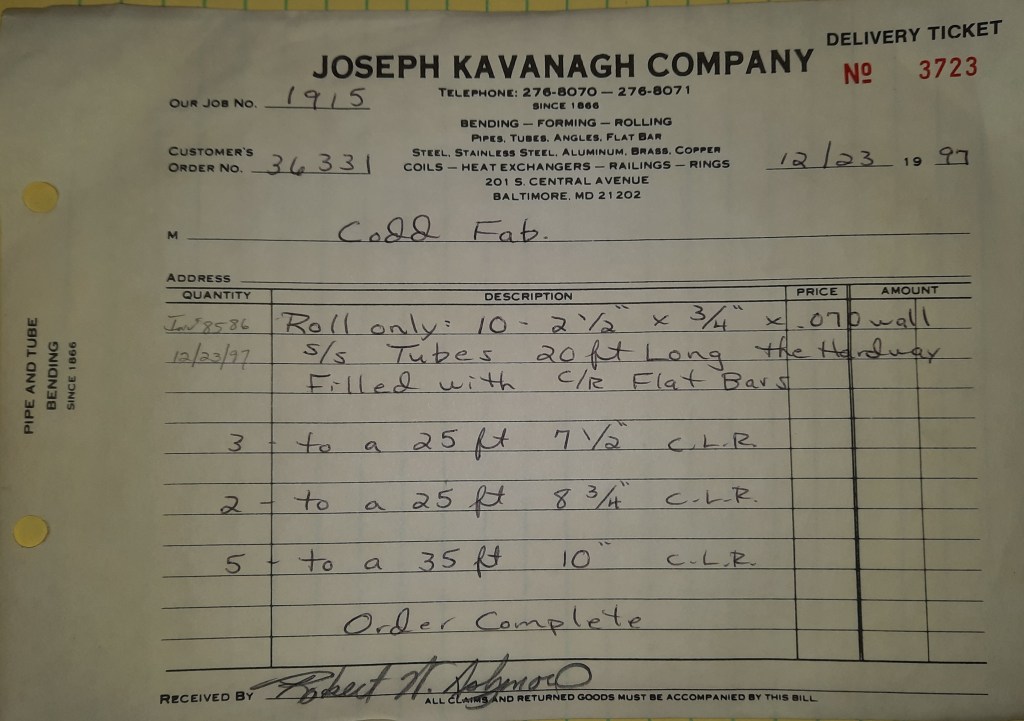 DELIVERY TICKET
JOSEPH KAVANAGH COMPANY
Nº 3723
TELEPHONE: 276-8070 — 276-8071
SINCE 1866
OUR JOB NO. 1915
BENDING — FORMING — ROLLING
PIPES, TUBES, ANGLES, FLAT BAR
STEEL, STAINLESS STEEL, ALUMINUM, BRASS, COPPER
COILS — HEAT EXCHANGERS — RAILINGS — RINGS
201 S. CENTRAL AVENUE
BALTIMORE, MD 21202
CUSTOMER'S
ORDER NO. 36331
12/23 19 97
M Codd Fab.
ADDRESS
QUANTITY DESCRIPTION PRICE AMOUNT
Inv# 8586 Roll only: 10 - 2 1/2" x 3/4" x .070 wall
12/23/97 S/S Tubes 20 ft Long the Hardway
Filled with C/R Flat Bars
3 - to a 25 ft 7 1/2" C.L.R.
2 - to a 25 ft 8 3/4" C.L.R.
5 - to a 35 ft 10" C.L.R.
Order Complete
RECEIVED BY Robert W.
ALL CLAIMS AND RETURNED GOODS MUST BE ACCOMPANIED BY THIS BILL
PIPE AND TUBE
BENDING
SINCE 1866